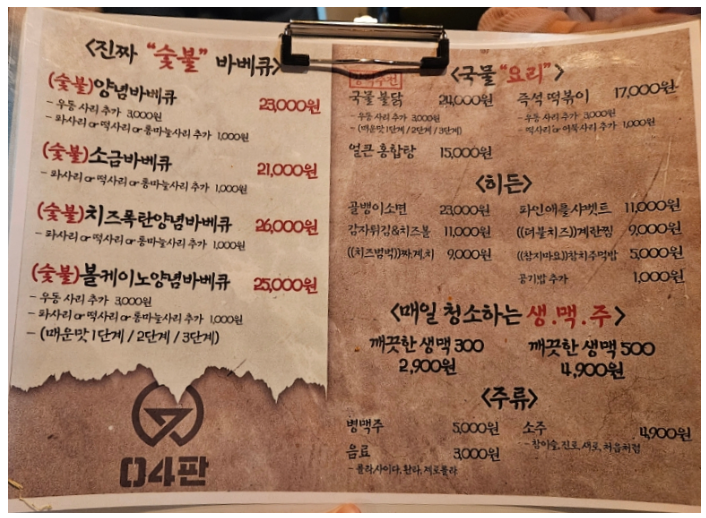 <진짜 "숯불" 바베큐>
(숯불)양념바베큐 23,000원
- 우동 사리 추가 3,000원
- 라사리 or 떡사리 or 통마늘사리 추가 1,000원
(숯불)소금바베큐 21,000원
- 라사리 or 떡사리 or 통마늘사리 추가 1,000원
(숯불)치즈폭탄양념바베큐 26,000원
- 라사리 or 떡사리 or 통마늘사리 추가 1,000원
(숯불)볼케이노양념바베큐 25,000원
- 우동 사리 추가 3,000원
- 라사리 or 떡사리 or 통마늘사리 추가 1,000원
- (매운맛 1단계 / 2단계 / 3단계)
04판
<국물 "요리">
국물 불닭 24,000원
- 우동 사리 추가 3,000원
- (매운맛 1단계 / 2단계 / 3단계)
얼큰 홍합탕 15,000원
즉석 떡볶이 17,000원
- 우동 사리 추가 3,000원
- 떡사리 or 어묵사리 추가 1,000원
<히든>
골뱅이소면 23,000원
감자튀김&치즈볼 11,000원
((치즈범벅))짜.계.치 9,000원
파인애플샤벳트 11,000원
((더블치즈))계란찜 9,000원
((참치마요))참치주먹밥 5,000원
공기밥 추가 1,000원
<매일 청소하는 생.맥.주>
깨끗한 생맥 300 깨끗한 생맥 500
2,900원 4,900원
<주류>
병맥주 5,000원
음료 3,000원
- 콜라,사이다,환타,제로콜라
소주 4,900원
- 참이슬, 진로, 새로, 처음처럼